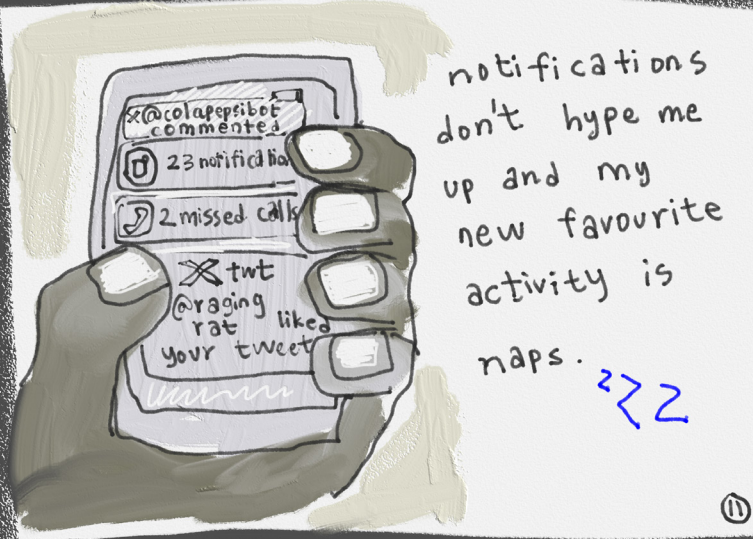 x@colapepsibot
commented
23 notification
2 missed calls
X twt
@raging
rat liked
your tweet
notifications
don't hype me
up and my
new favourite
activity is
naps.
zzz
11